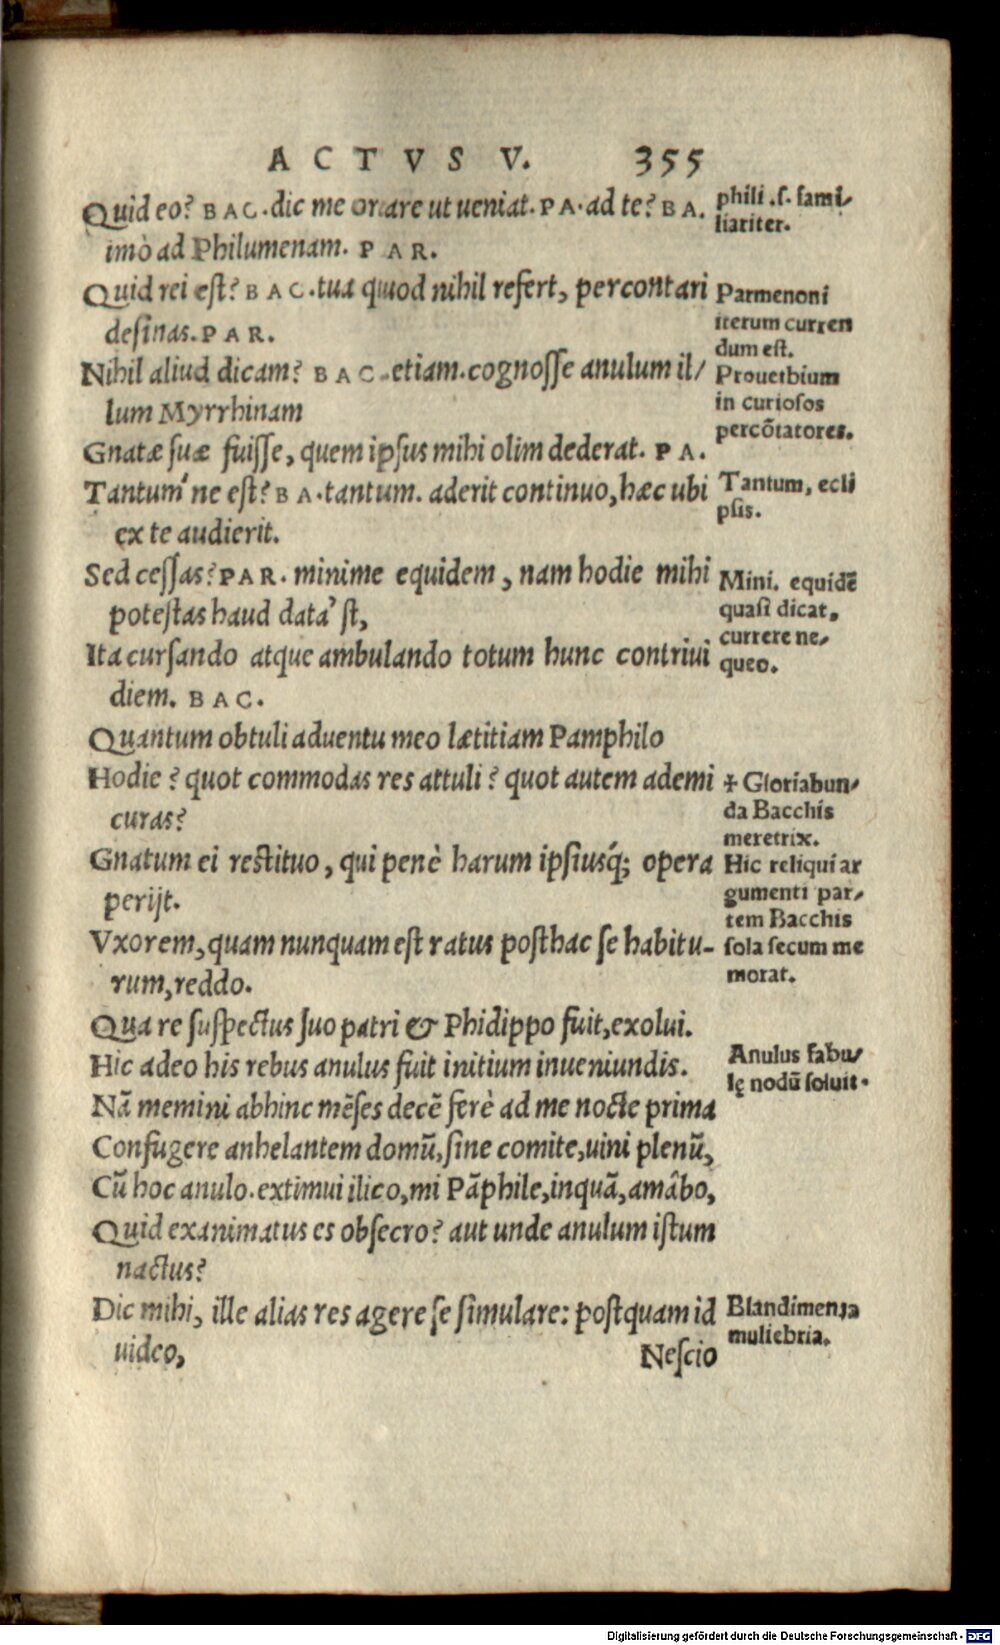 ACTVS V. 355
Quid eo? BAC. dic me orare ut ueniat. PA. ad te? BA.
imò ad Philumenam. PAR.
Quid rei est? BAC. tua quod nihil refert, percontari
desinas. PAR.
Nihil aliud dicam? BAC. etiam. cognosse anulum il/
lum Myrrhinam
Gnatæ suæ fuisse, quem ipsus mihi olim dederat. PA.
Tantum'ne est? BA. tantum. aderit continuo, hæc ubi
ex te audierit.
Sed cessas? PAR. minime equidem, nam hodie mihi
potestas haud data'st,
Ita cursando atque ambulando totum hunc contriui
diem. BAC.
Quantum obtuli aduentu meo lætitiam Pamphilo
Hodie? quot commodas res attuli? quot autem ademi
curas?
Gnatum ei restituo, qui penè harum ipsiusq́; opera
perijt.
Vxorem, quam nunquam est ratus posthac se habitu-
rum, reddo.
Qua re suspectus suo patri & Phidippo fuit, exolui.
Hic adeo his rebus anulus fuit initium inueniundis.
Nã memini abhinc mēses decē ferè ad me nocte prima
Confugere anhelantem domū, sine comite, uini plenū,
Cū hoc anulo. extimui ilico, mi Pãphile, inquã, amâbo,
Quid exanimatus es obsecro? aut unde anulum istum
nactus?
Dic mihi, ille alias res agere se simulare: postquam id
uideo,
Nescio
phili .s. fami/
liariter.
Parmenoni
iterum curren
dum est.
Prouerbium
in curiosos
percōtatores.
Tantum, ecli
psis.
Mini. equidē
quasi dicat,
currere ne/
queo.
✢ Gloriabun/
da Bacchis
meretrix.
Hic reliqui ar
gumenti par/
tem Bacchis
sola secum me
morat.
Anulus fabu/
lę nodū soluit.
Blandimenta
muliebria.
Digitalisierung gefördert durch die Deutsche Forschungsgemeinschaft - DFG